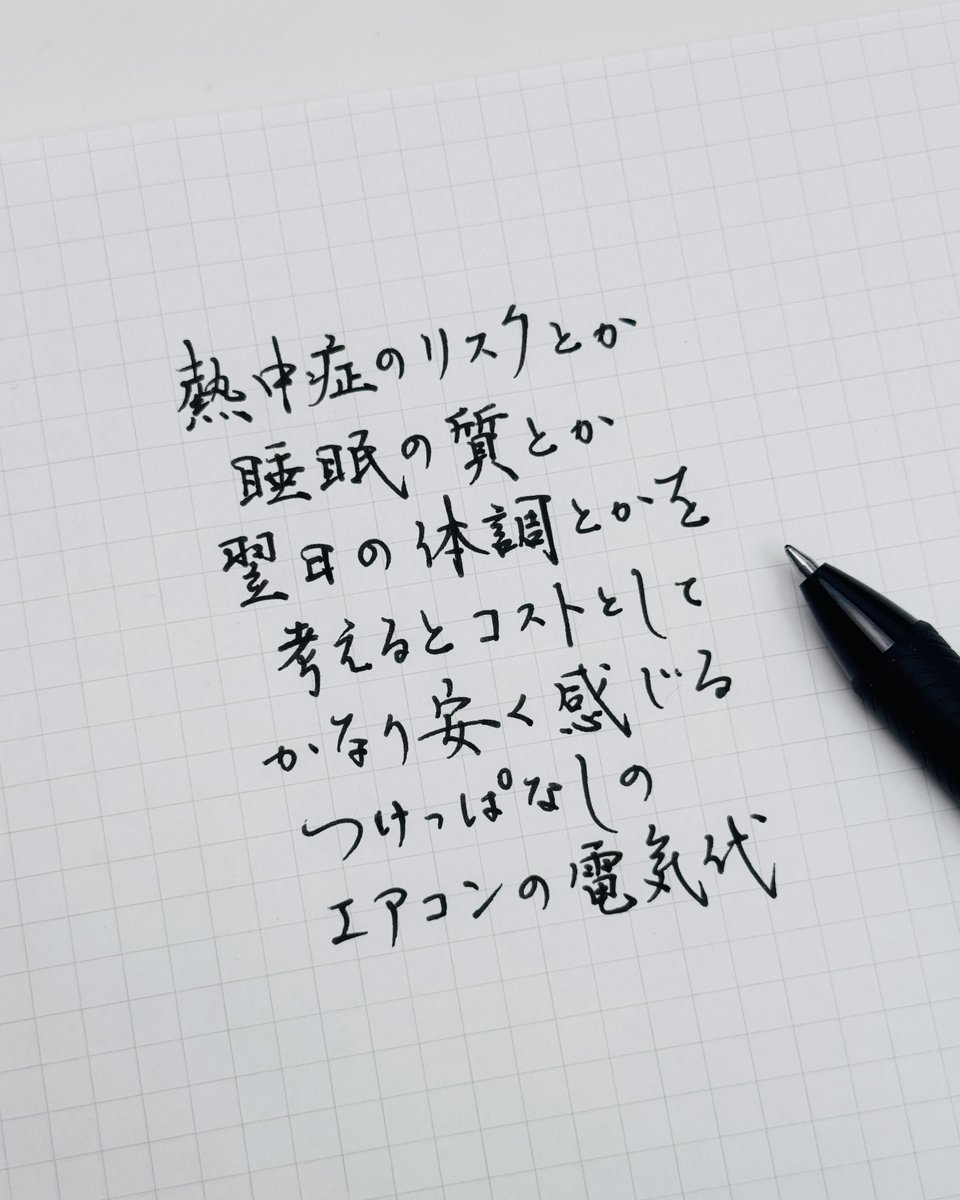 熱中症のリスクとか
睡眠の質とか
翌日の体調とかを
考えるとコストとして
かなり安く感じる
つけっぱなしの
エアコンの電気代